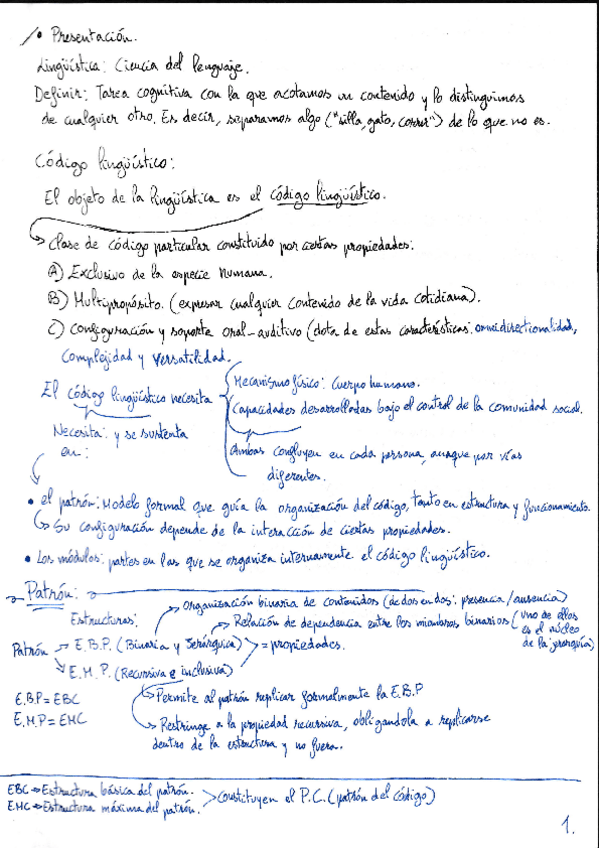 • Presentación.
Lingüística: Ciencia del lenguaje.
Definir: Tarea cognitiva con la que acotamos un contenido y lo distinguimos
de cualquier otro. Es decir, separamos algo ("silla, gato, correr") de lo que no es.
Código lingüístico:
El objeto de la lingüística es el código lingüístico.
↳ Clase de código particular constituido por ciertas propiedades:
A) Exclusivo de la especie humana.
B) Multipropósito. (expresar cualquier contenido de la vida cotidiana).
C) Configuración y soporte oral-auditivo (dota de estas características: omnidirectionalidad,
Complejidad y Versatilidad.
El código lingüístico necesita
Mecanismo físico: Cuerpo humano.
Capacidades desarrolladas bajo el control de la comunidad social.
Necesita: y se sustenta
en:
Ambas confluyen en cada persona, aunque por vías
diferentes.
• el patrón: Modelo formal que guía la organización del código, tanto en estructura y funcionamiento.
↳ Su configuración depende de la interacción de ciertas propiedades.
• Los módulos: partes en las que se organiza internamente el código lingüístico.
→ Patrón:
Estructuras:
→ Organización binaria de contenidos (de dos en dos: presencia/ausencia)
→ Relación de dependencia entre los miembros binarios (uno de ellos
es el núcleo
de la jerarquía)
Patrón → E.B.P. (Binaria y Jerárquica) > = propiedades.
↘ E.M.P. (Recursiva e inclusiva)
E.B.P = EBC
E.M.P = EMC
↳ Permite al patrón replicar formalmente la E.B.P
↳ Restringe a la propiedad recursiva, obligándola a replicarse
dentro de la estructura y no fuera.
EBC → Estructura básica del patrón.
EMC → Estructura máxima del patrón.
> Constituyen el P.C. (patrón del código)
1.